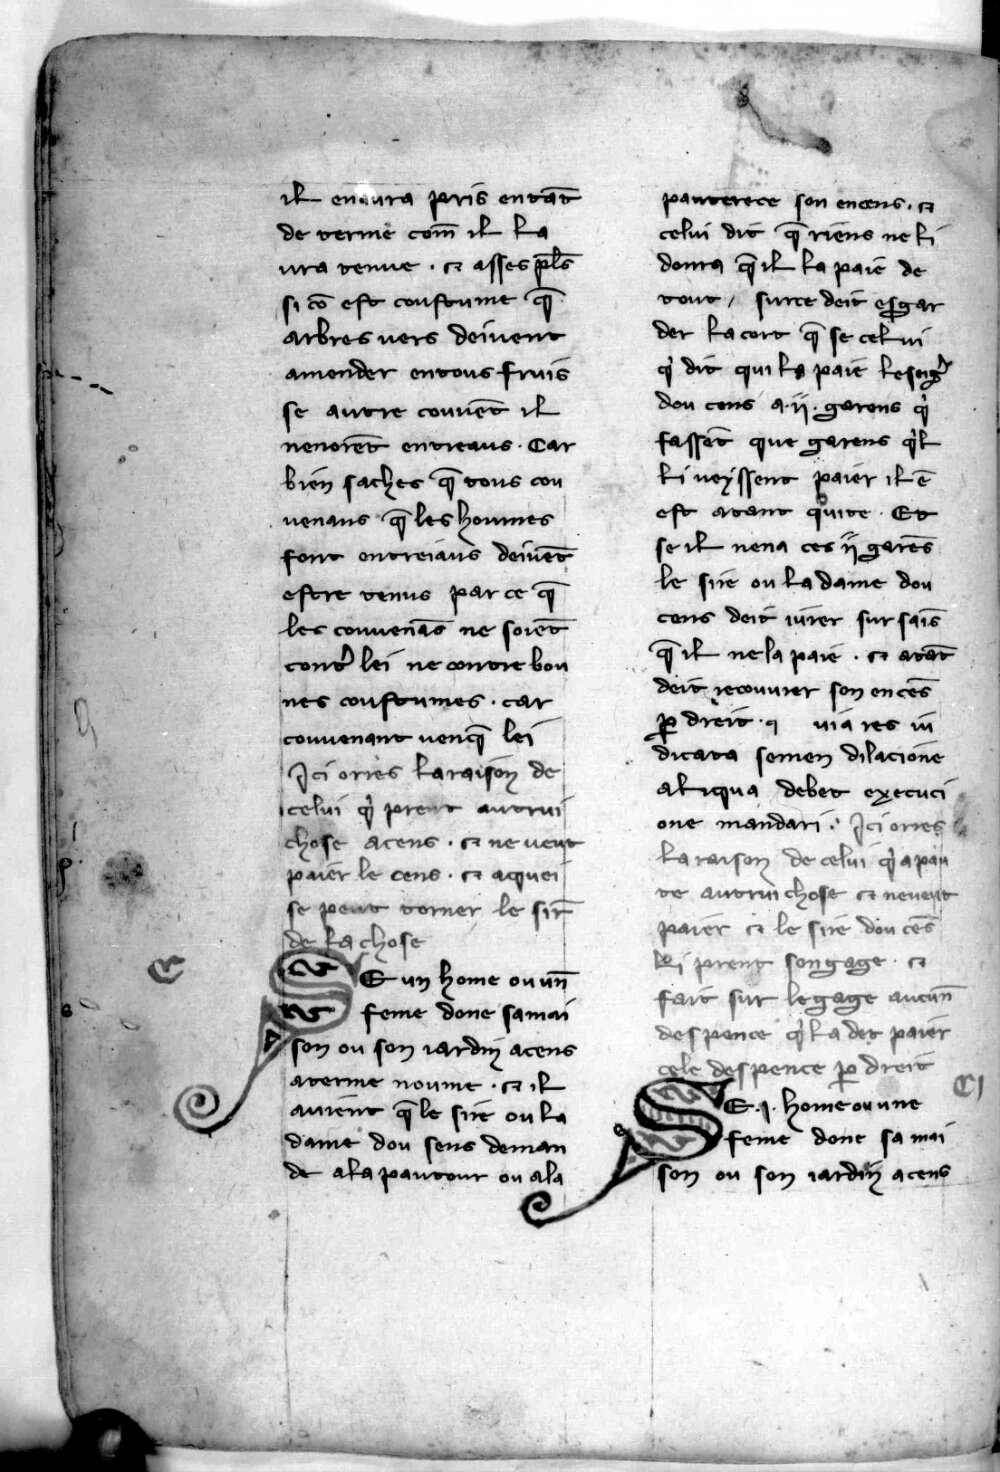 il enaura pris entāt
de terme com̄ il la
ura tenue . et asses pl̄s
si cō est coustume q̄
arbres uers deiuent
amender entous fruis
se autre couuēt il
nenorēt entreaus . Car
bien saches q̄ tous cou
uenans q̄ les houmes
font entreiaus deiuēt
estre tenus par ce q̄
les couuenās ne soiēt
contr̾ lei ne contre bou
nes coustumes . car
couuenant uenq̄ lei
Ici orres la raison de
celui qͥ prent autrui
chose acens . et ne ueut
paier le cens . et aquei
se peut torner le sir̄
de la chose
C
SE un home ou un̄
feme done samai
son ou son iardin acens
aterme noume . et il
auient q̄ le sire ou la
dame dou sens deman
de ala pautour ou ala
pauterece son encens . et
celui dit q̄ riens ne li
doura q̄ il la paie de
tout / surce deit esgar
der la cort q̄ se celui
qͥ dit qui la paie le seigr̾
dou cens a .ii. garens qͥ
fassēt que garens qͥl
li ueyssent paier il ē
est atant quite . Et
se il nena ces ii garēs
le sire ou la dame dou
cens deit iurer sur sais̄
q̄ il ne la paie . et atāt
deit recouurer son encēs
ꝑ dreit . q uia res iu
dicata semen dilacione
aliqua debet execuci
one mandari . Ici orres
la raison de celui qͥ a pau
te autrui chose et ne ueut
paier et le sire dou cēs
li prent son gage . et
fait sur le gage aucun̄
despence qͥ la det paier
cele despence ꝑ dreit
CI
SE .I. home ou une
feme done sa mai
son ou son iardin acens